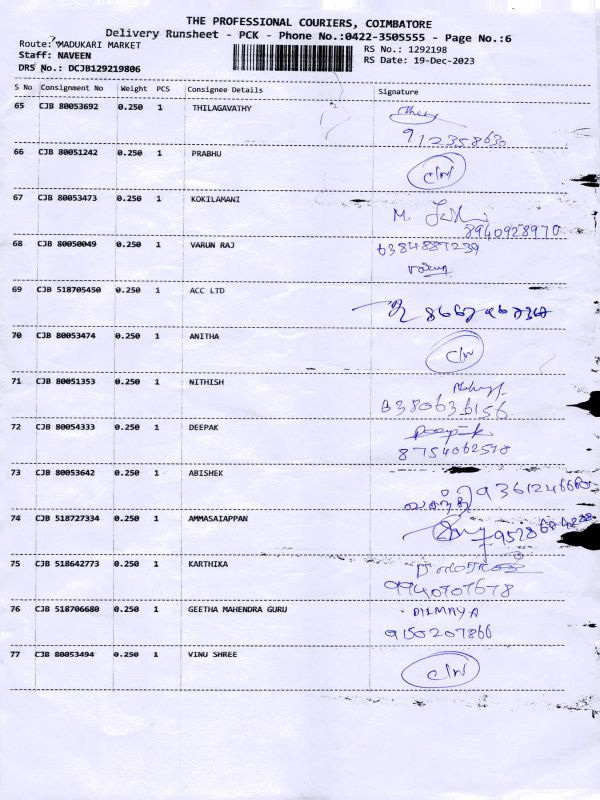 THE PROFESSIONAL COURIERS, COIMBATORE
Delivery Runsheet - PCK - Phone No.:0422-3505555 - Page No.:6
Route: MADUKARI MARKET
RS No.: 1292198
Staff: NAVEEN
RS Date: 19-Dec-2023
DRS No.: DCJB129219806
S No Consignment No Weight PCS Consignee Details Signature
65 CJB 80053692 0.250 1 THILAGAVATHY
9123358630
66 CJB 80051242 0.250 1 PRABHU C/W
67 CJB 80053473 0.250 1 KOKILAMANI M.
8940928970
68 CJB 80050049 0.250 1 VARUN RAJ 6384887239
69 CJB 518705450 0.250 1 ACC LTD
70 CJB 80053474 0.250 1 ANITHA C/W
71 CJB 80051353 0.250 1 NITHISH
6380636156
72 CJB 80054333 0.250 1 DEEPAK Deepak
8754062578
73 CJB 80053642 0.250 1 ABISHEK வசந்தி
74 CJB 518727334 0.250 1 AMMASAIAPPAN
75 CJB 518642773 0.250 1 KARTHIKA
9940707678
76 CJB 518706680 0.250 1 GEETHA MAHENDRA GURU DILMAYA
9150207866
77 CJB 80053494 0.250 1 VINU SHREE C/W